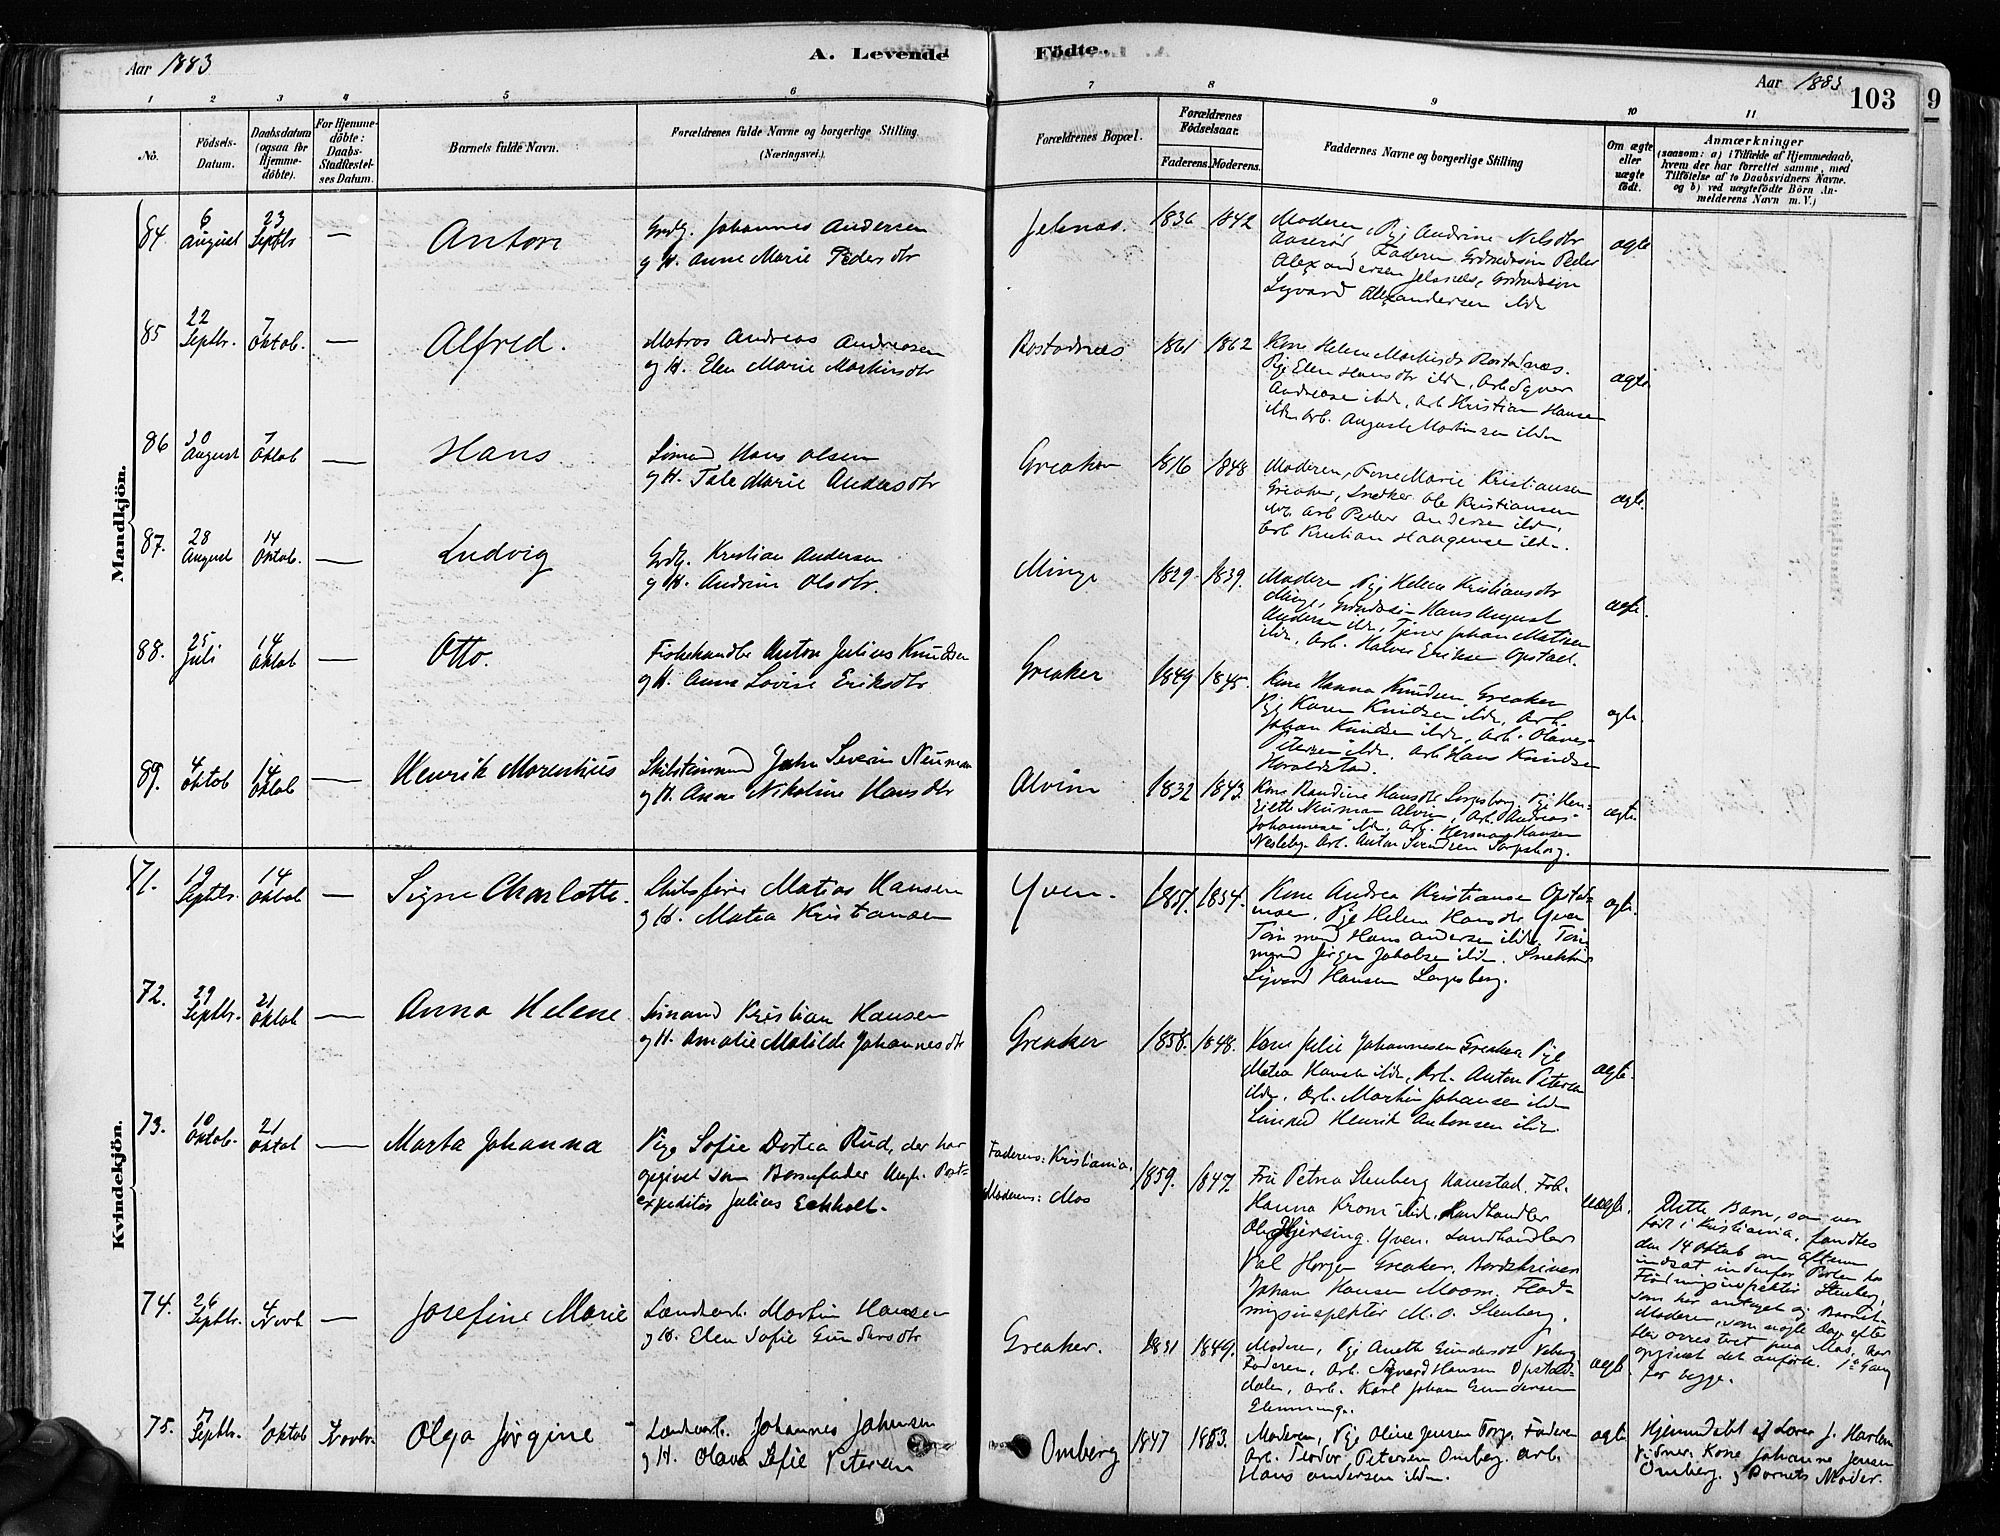 Aar 1883
A. Levende
Födte.
Aar 1883
103
9
1 2 3 4 5 6 7 8 9 10 11
No.
Födsels-
Datum.
Daabsdatum
(ogsaa for
Hjemme-
döbte).
For Hjemme-
döbte:
Daabs-
Stadfæstel-
ses Datum.
Barnets fulde Navn.
Forældrenes fulde Navne og borgerlige Stilling.
(Næringsvei.)
Forældrenes Bopæl.
Forældrenes
Födselsaar.
Faderens. Moderens.
Faddernes Navne og borgerlige Stilling
Om ægte
eller
uægte
födt.
Anmærkninger
(saasom: a) i Tilfælde af Hjemmedaab,
hvem der har forrettet samme, med
Tilföielse af to Daabsvidners Navne.
og b) ved uægtefödte Börn An-
melderens Navn m. V.)
Mandkjön.
84. 6 August 23 Septbr — Anton
Grdg. Johannes Andersen
og H. Anne Marie Pedersdtr
Jelsnæs. 1836 1842
Moderen, Pige Andrine Nilsdtr
Aaserør, Faderen, Peder
Alexandersen Jelsnæs,
Sigvard Alexandersen ibdn
ægte
85 22 Septbr. 7 Oktob. — Alfred.
Matros Andreas Andreasen
og H. Elen Marie Martinsdtr
Rostadnæs 1861 1862
Kone Helene Rostadnæs.
Pige Elen Hansdtr ibdn, Arb
Andreasen ibdn, Arb Kristian Hansen
ibdn Arb. August Martinsen ibdn
ægte
86 30 August 7 Oktob — Hans
Sømand Hans Olsen
og H. Tale Marie Andersdtr
Greaker 1816 1848
Moderen, Marie Kristiansen
Greaker, Snedker Ole Kristiansen
Arb Peder Andersen ibdn,
Arb Kristian Haagensen ibdn.
ægte.
87. 28 August 14 Oktob. — Ludvig
Grdg. Kristian Andersen
og H. Andrine Olsdtr.
Minge 1829. 1839.
Moderen, Pige Helene Kristiansdtr
Minge, Hans August
Andersen ibdn, Tjener Johan Matisen
ibdn, Arb. Halvor Eriksen Opstad.
ægte.
88. 25 Juli 14 Oktob — Otto.
Fiskehandler Anton Julius Knudsen
og H. Anne Lovise Eriksdtr
Greaker 1849 1845.
Kone Hanna Knudsen Greaker
Pige Karen Knudsen ibdn, Arb.
Johan Knudsen ibdn, Arb. Olaves
Petersen ibdn. Arb Hans Knudsen
Haraldstad.
ægte.
89. 4 Oktob 14 Oktob — Henrik Morentius
John Severin Neuman
og H. Anne Nikoline Hansdtr
Alvim 1832 1843.
Kone Randine Hansdtr Sarpsborg, Pige Hen-
riette Neuman Alvim, Arb. Andreas
Johannesen ibdn, Arb. Herman Hansen
Arb. Anton Svendsen Sarpsborg.
ægte.
Kvindekjön.
71. 19 Septbr. 14 Oktob — Signe Charlotte.
Skibsfører Matias Hansen
og H. Matea Kristiansen
Yven. 1854.
Kone Andrea Kristiansen Opstad-
moen, Pige Helene Hansdtr Yven
Tømmermand Hans Andersen ibdn, Tøm-
mermand Jørgen Jakobsen ibdn. Snekker
Sigvard Hansen Sarpsborg.
ægte.
72. 29 Septbr. 21 Oktob — Anna Helene
Sømand Kristian Hansen
og H. Amalie Matilde Johannesdtr
Greaker 1858. 1848.
Kone Julie Johannesen Greaker Pige
Matea ibdn, Arb. Anton Petersen
ibdn, Arb. Martin Johansen ibdn
Sømand Henrik Antonsen ibdn.
ægte.
73. 10 Oktob. 21 Oktob — Marta Johanna
Pige Sofie Dortea Rud, der har
opgivet som Barnefader Ungk. Post-
expeditør Julius Eckholt.
Faderens: Kristiania.
Moderens: Mos
1859. 1847.
Fru Petrea Stenberg Hanestad. Frk.
Hanna Krom ibdn. Landhandler
Ole Hjersing. Yven. Landhandler
Pal Horgen Greaker. Bordskriver
Johan Hansen Moom. Flød-
ningsinspektør M. O. Stenberg.
uægte.
Dette Barn, som var
født i Kristiania, fandtes
den 14 Oktob om Aftenen
indsat indenfor Porten hos
Flødningsinspektør Stenberg,
som har antaget og Barnet.
Moderen, som nogle Dage efter
blev arresteret paa Mos, har
opgivet det anførte. 1ste Gang
for begge.
74. 26 Septbr. 4 Novb — Josefine Marie
Landarb. Martin Hansen
og H. Elen Sofie Gundersdtr
Greaker. 1849.
Moderen, Pige Anette Gundersdt
Faderen, Arb. Sigvard Hansen Opstad-
dalen, Arb. Karl Johan Gundersen
ægte.
75. Septbr. Oktob Novbr. Olga Jørgine
Landarb. Johannes Johansen
og H. Olava Sofie Petersen
Omberg 1847 1853.
Moderen, Pige Oline Jensen Torp, Faderen
Arb. Teodor Petersen Omberg. Arb.
Hans Andersen ibdn.
ægte
Hjemmedøbt af Lærer J. Harlem
Vidner: Kone Johanne Jensen
Omberg. og Barnets Moder.